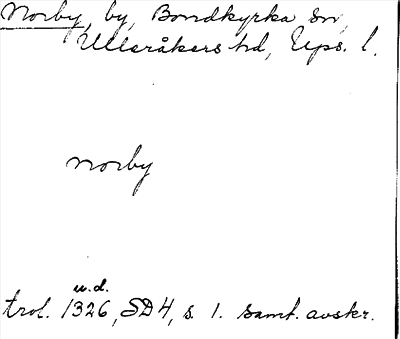 Norby, by, Bondkyrka sn,
Ulleråkers hd, Ups. l.
Norby
u.d.
trol. 1326, SD 4, s. 1. Samt. avskr.